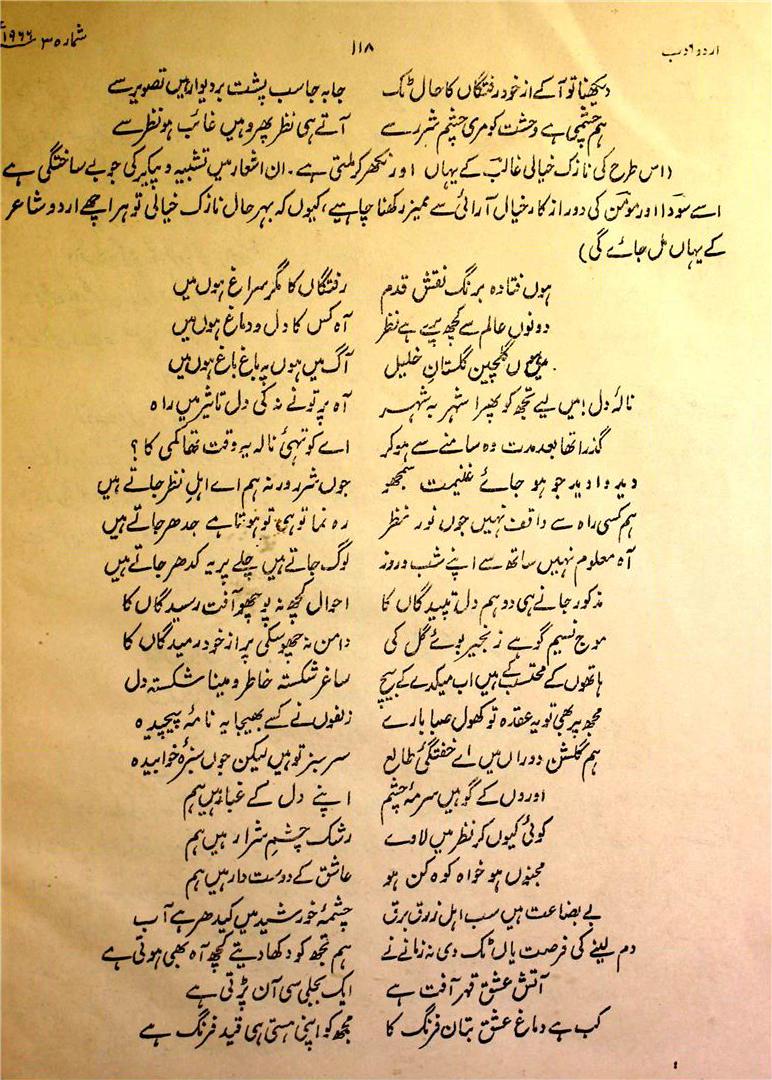 اردو ادب ۱۱۸ شمارہ ۳ ۱۹۶۶ء
دیکھنا تو آ کے از خود رفتگاں کا حال ٹک جابہ جا سب پشت بر دیوار ہیں تصویر سے
ہم چشمی ہے وحشت کو مری چشمِ شرر سے آتے ہی نظر پھر وہیں غائب ہو نظر سے
(اس طرح کی نازک خیالی غالبؔ کے یہاں اور نکھر کر ملتی ہے۔ ان اشعار میں تشبیہ و پیکر کی جو بے ساختگی ہے
اسے سوداؔ اور مومنؔ کی دور از کار خیال آرائی سے ممیز رکھنا چاہیے، کیوں کہ بہر حال نازک خیالی تو ہر اچھے اردو شاعر
کے یہاں مل جائے گی)
ہوں فتادہ برنگ نقش قدم رفتگاں کا مگر سراغ ہوں میں
دونوں عالم سے کچھ پرے ہے نظر آہ کس کا دل و دماغ ہوں میں
گلچین گلستانِ خلیل آگ میں ہوں پہ باغ باغ ہوں میں
نالۂ دل! میں لیے تجھ کو پھرا شہر بہ شہر آہ پر تو نے نہ کی دل تاثیر میں راہ
گذرا تھا بعد مدت وہ سامنے سے ہو کر اے کوتہیٔ نالہ یہ وقت تھا کمی کا؟
دید وا دید جو ہو جائے غنیمت سمجھو جوں شرر ورنہ ہم اے اہلِ نظر جاتے ہیں
ہم کسی راہ سے واقف نہیں جوں نور نظر رہ نما تو ہی تو ہوتا ہے جدھر جاتے ہیں
آہ معلوم نہیں ساتھ سے اپنے شب و روز لوگ جاتے ہیں چلے پر یہ کدھر جاتے ہیں
مذکور جانے ہی دو ہم دل تپیدگاں کا احوال کچھ نہ پوچھو آفت رسیدگاں کا
موج نسیم گو ہے زنجیر بوئے گل کی دامن نہ چھو سکی پر از خود رمیدگاں کا
ہاتھوں کے محتسب کے ہیں اب میکدے کے بیچ ساغر شکستہ خاطر و مینا شکستہ دل
مجھ پر بھی تو یہ عقدہ تو کھول صبا بارے زلفوں نے کسے بھیجا یہ نامۂ پیچیدہ
ہم گلشن دوراں میں اے خفتگیٔ طالع سرسبز تو ہیں لیکن جوں سبزۂ خوابیدہ
اوروں کے گو ہیں سرمۂ چشم اپنے دل کے غبار ہیں ہم
کوئی کیوں کر نظر میں لاوے رشک چشمِ شرار ہیں ہم
مجنوں ہو خواہ کوہ کن ہو عاشق کے دوست دار ہیں ہم
بے بضاعت ہیں سب اہل زرق برق چشمۂ خورشید میں کیدھر ہے آب
دم لینے کی فرصت یاں ٹک دی نہ زمانے نے ہم تجھ کو دکھا دیتے کچھ آہ بھی ہوتی ہے
آتش عشق قہر آفت ہے ایک بجلی سی آن پڑتی ہے
کب ہے دماغ عشق بتان فرنگ کا مجھ کو اپنی ہستی ہی قید فرنگ ہے